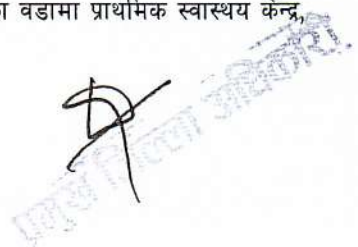 वडामा प्राथमिक स्वास्थ्य केन्द्र,
प्रमुख जिल्ला अधिकारी